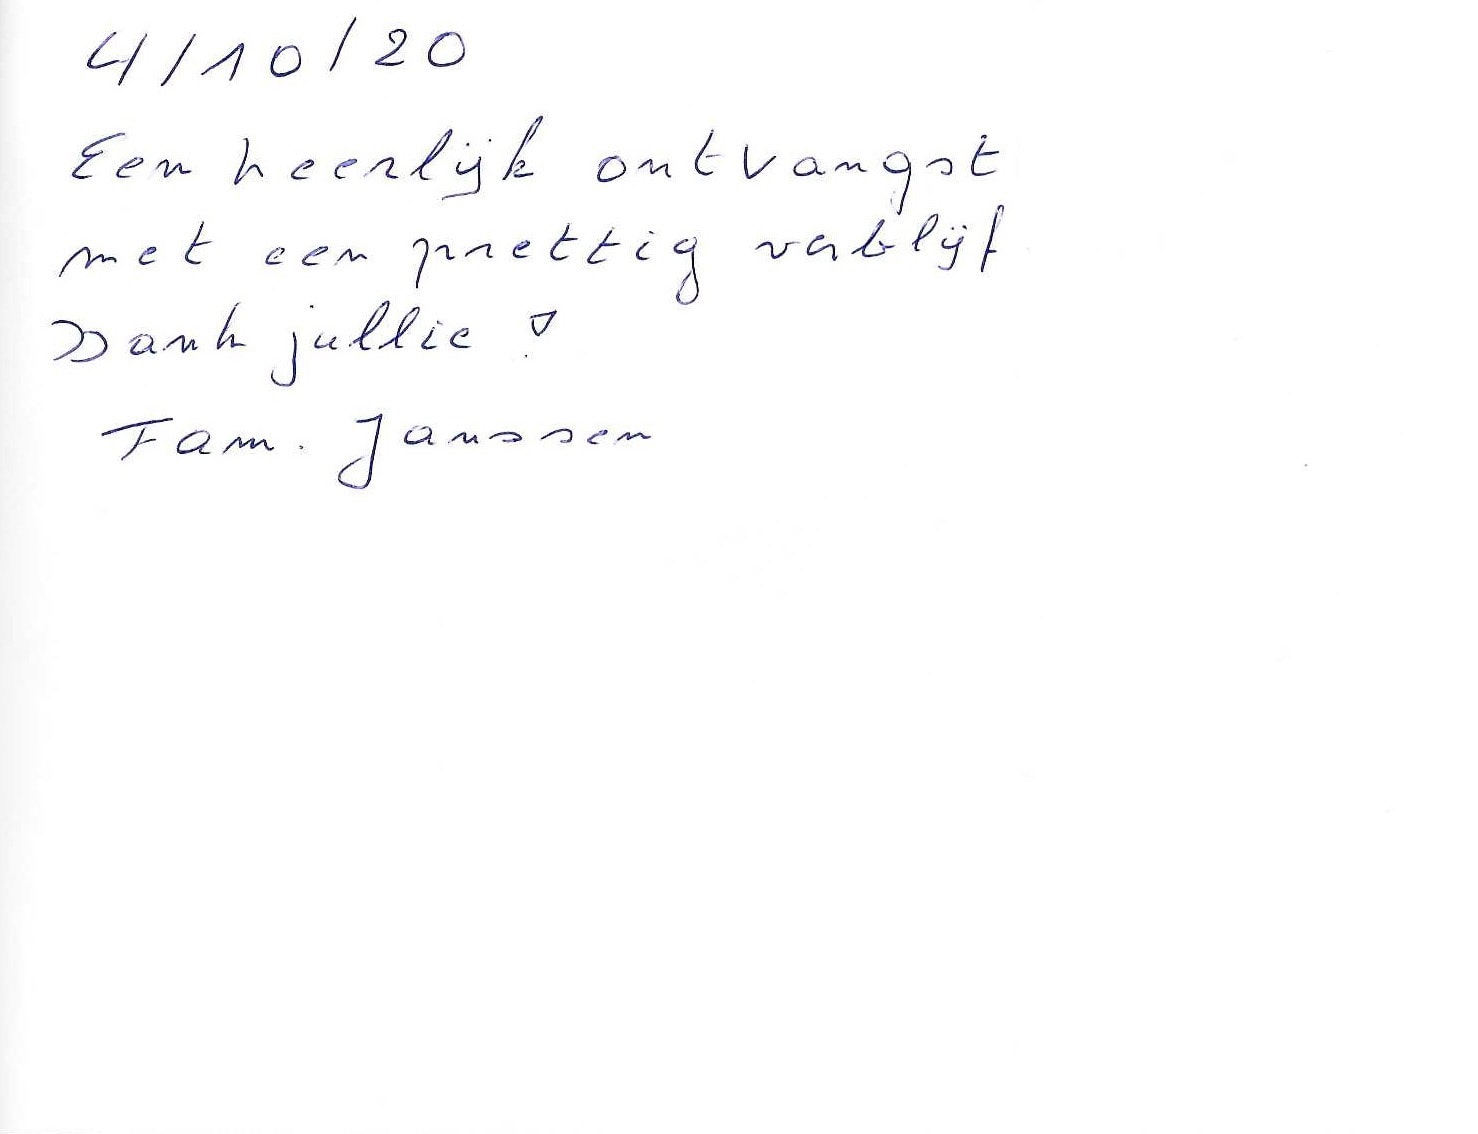 4/10/20
Een heerlijk ontvangst
met een prettig verblijf
Dank jullie !
Fam. Janssen